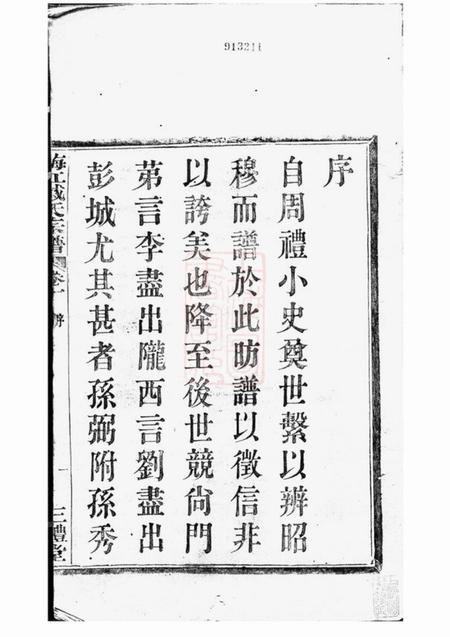 913211
序
自周禮小史奠世繫以辨昭
穆而譜於此昉譜以徵信非
以誇美也降至後世競尙門
苐言李盡出隴西言劉盡出
彭城尤其甚者孫弼附孫秀
氏宗譜
卷一
序
三禮堂